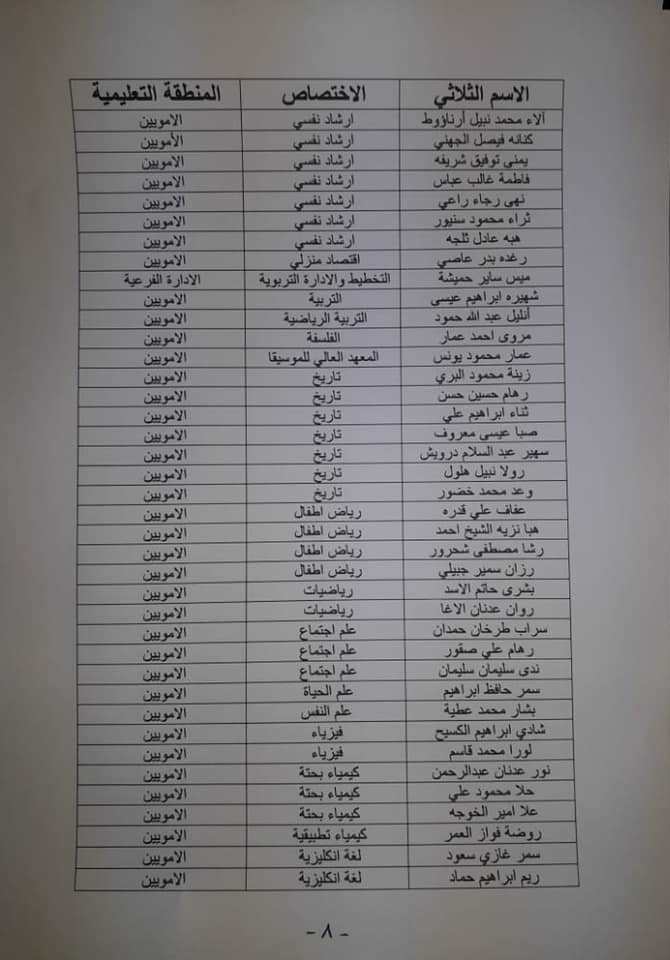 الاسم الثلاثي الاختصاص المنطقة التعليمية
آلاء محمد نبيل أرناؤوط ارشاد نفسي الامويين
كنانه فيصل الجهني ارشاد نفسي الأمويين
يمني توفيق شريفه ارشاد نفسي الامويين
فاطمة غالب عباس ارشاد نفسي الامويين
نهى رجاء راعي ارشاد نفسي الامويين
ثراء محمود سنيور ارشاد نفسي الامويين
هبه عادل ثلجه ارشاد نفسي الامويين
رغده بدر عاصي اقتصاد منزلي الامويين
ميس ساير حميشة التخطيط والادارة التربوية الادارة الفرعية
شهيره ابراهيم عيسى التربية الامويين
أنليل عبد الله حمود التربية الرياضية الامويين
مروى احمد عمار الفلسفة الامويين
عمار محمود يونس المعهد العالي للموسيقا الامويين
زينة محمود البري تاريخ الامويين
رهام حسين حسن تاريخ الامويين
ثناء ابراهيم علي تاريخ الامويين
صبا عيسى معروف تاريخ الامويين
سهير عبد السلام درويش تاريخ الامويين
رولا نبيل هلول تاريخ الامويين
وعد محمد خضور تاريخ الامويين
عفاف علي قدره رياض اطفال الامويين
هبا نزيه الشيخ احمد رياض اطفال الامويين
رشا مصطفى شحرور رياض اطفال الامويين
رزان سمير جبيلي رياض اطفال الامويين
بشرى حاتم الاسد رياضيات الامويين
روان عدنان الاغا رياضيات الامويين
سراب طرخان حمدان علم اجتماع الامويين
رهام علي صقور علم اجتماع الامويين
ندى سليمان سليمان علم اجتماع الامويين
سمر حافظ ابراهيم علم الحياة الامويين
بشار محمد عطية علم النفس الامويين
شادي ابراهيم الكسيح فيزياء الامويين
لورا محمد قاسم فيزياء الامويين
نور عدنان عبدالرحمن كيمياء بحتة الامويين
حلا محمود علي كيمياء بحتة الامويين
علا امير الخوجه كيمياء بحتة الامويين
روضة فواز العمر كيمياء تطبيقية الامويين
سمر غازي سعود لغة انكليزية الامويين
ريم ابراهيم حماد لغة انكليزية الامويين
- ٨ -